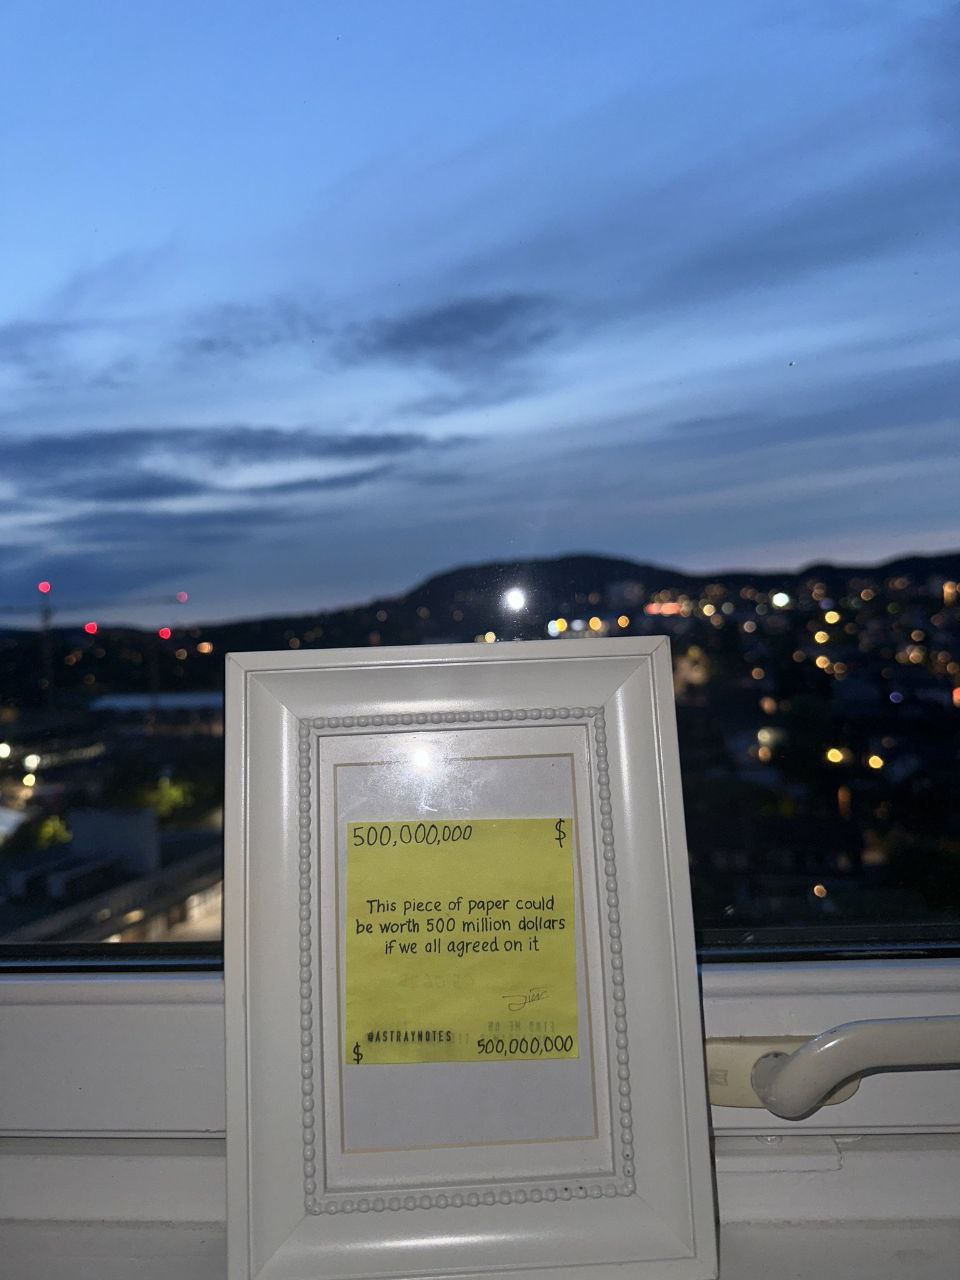 500,000,000 $
This piece of paper could
be worth 500 million dollars
if we all agreed on it
@ASTRAYNOTES
$ 500,000,000